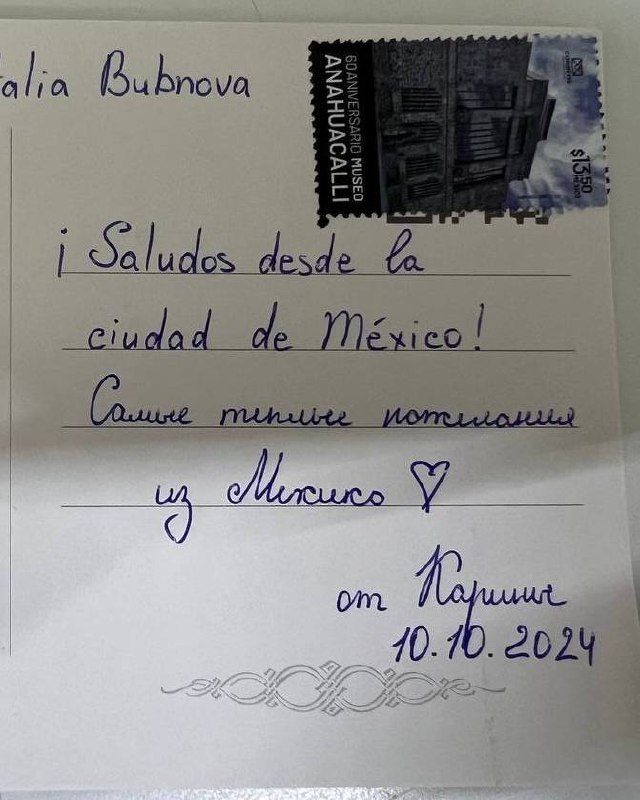 alia Bubnova
60 ANIVERSARIO MUSEO
ANAHUACALLI
$13.50
MÉXICO
¡ Saludos desde la
ciudad de México!
Самые теплые пожелания
из Мехико ♡
от Карины
10.10.2024